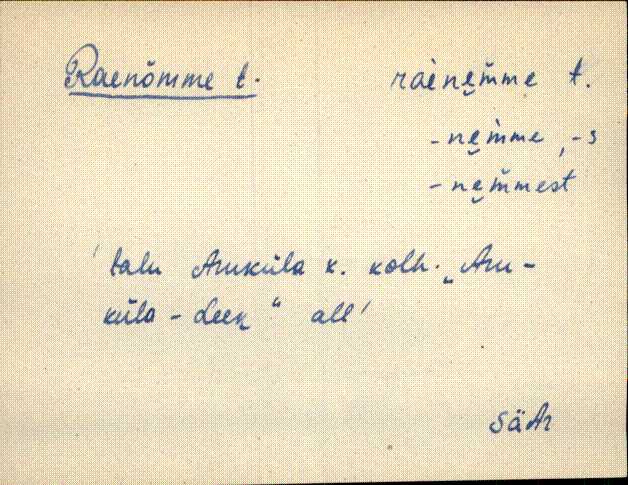 Raenõmme t. raène̮m̆me t.
- ne̮m̀me, -s
- ne̮m̆mest
'talu Aruküla k. kolh. „Aru-
küla - Leek“ all'
SäAr